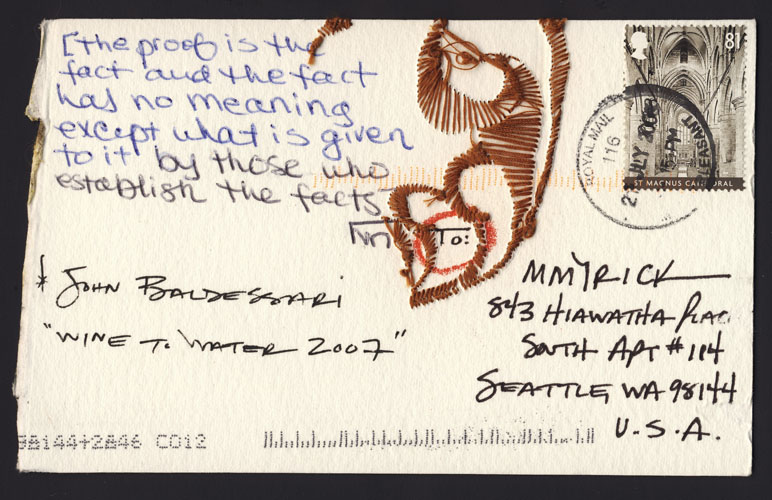 [the proof is the
fact and the fact
has no meaning
except what is given
to it by those who
establish the facts
To:
* John Baldessari
"Wine to Water 2007"
MMYRICK
843 HIAWATHA PLAC
SOUTH APT # 114
SEATTLE, WA 98144
U.S.A.
81
ST MAGNUS CATHEDRAL
ROYAL MAIL
116
JULY 2008
PM
LEASANT
98144+2846 C012